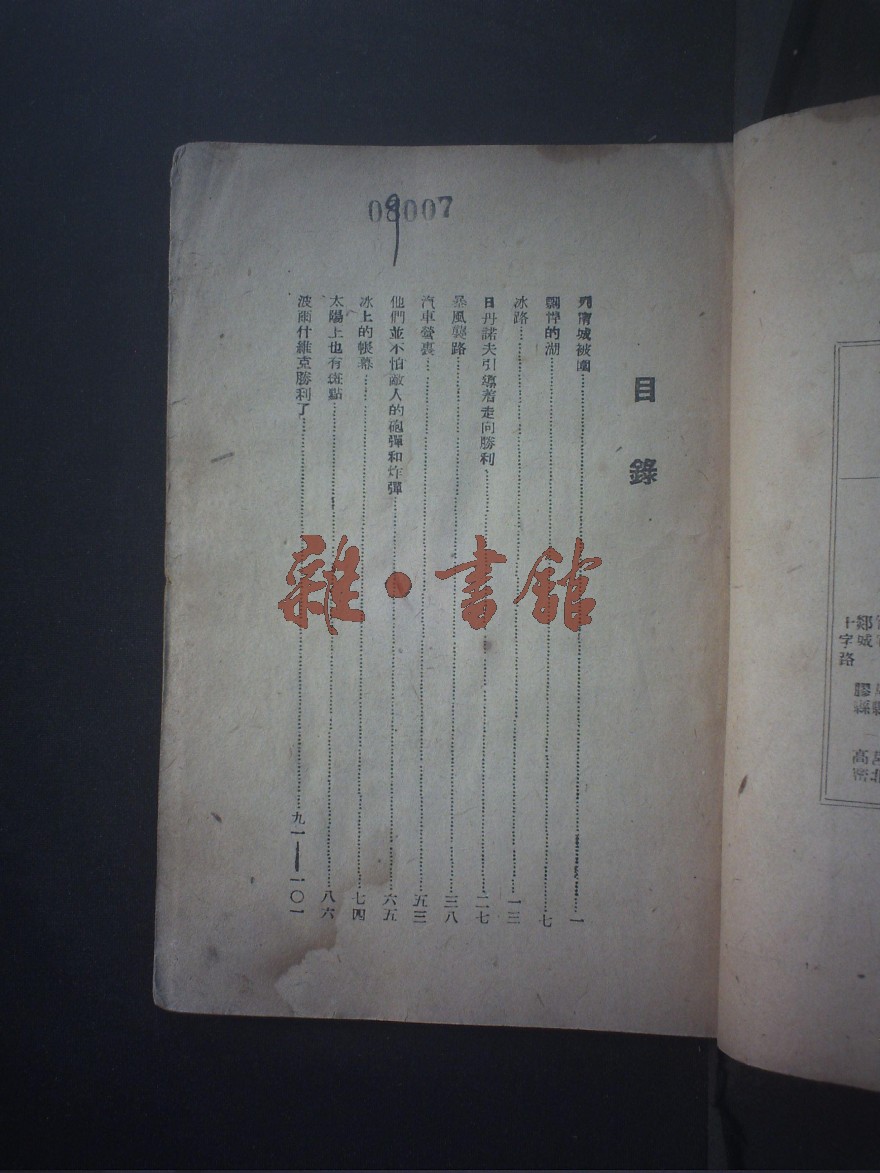 08007
目錄
列甯城被圍……一
飄悍的湖……七
冰路……一三
日丹諾夫引導着走向勝利……二七
暴風襲路……三八
汽車營裏……五三
他們並不怕敵人的砲彈和炸彈……六五
冰上的帳幕……七四
太陽上也有斑點……八六
波爾什維克勝利了……九一——一〇一
雜·書館
十字路
高密